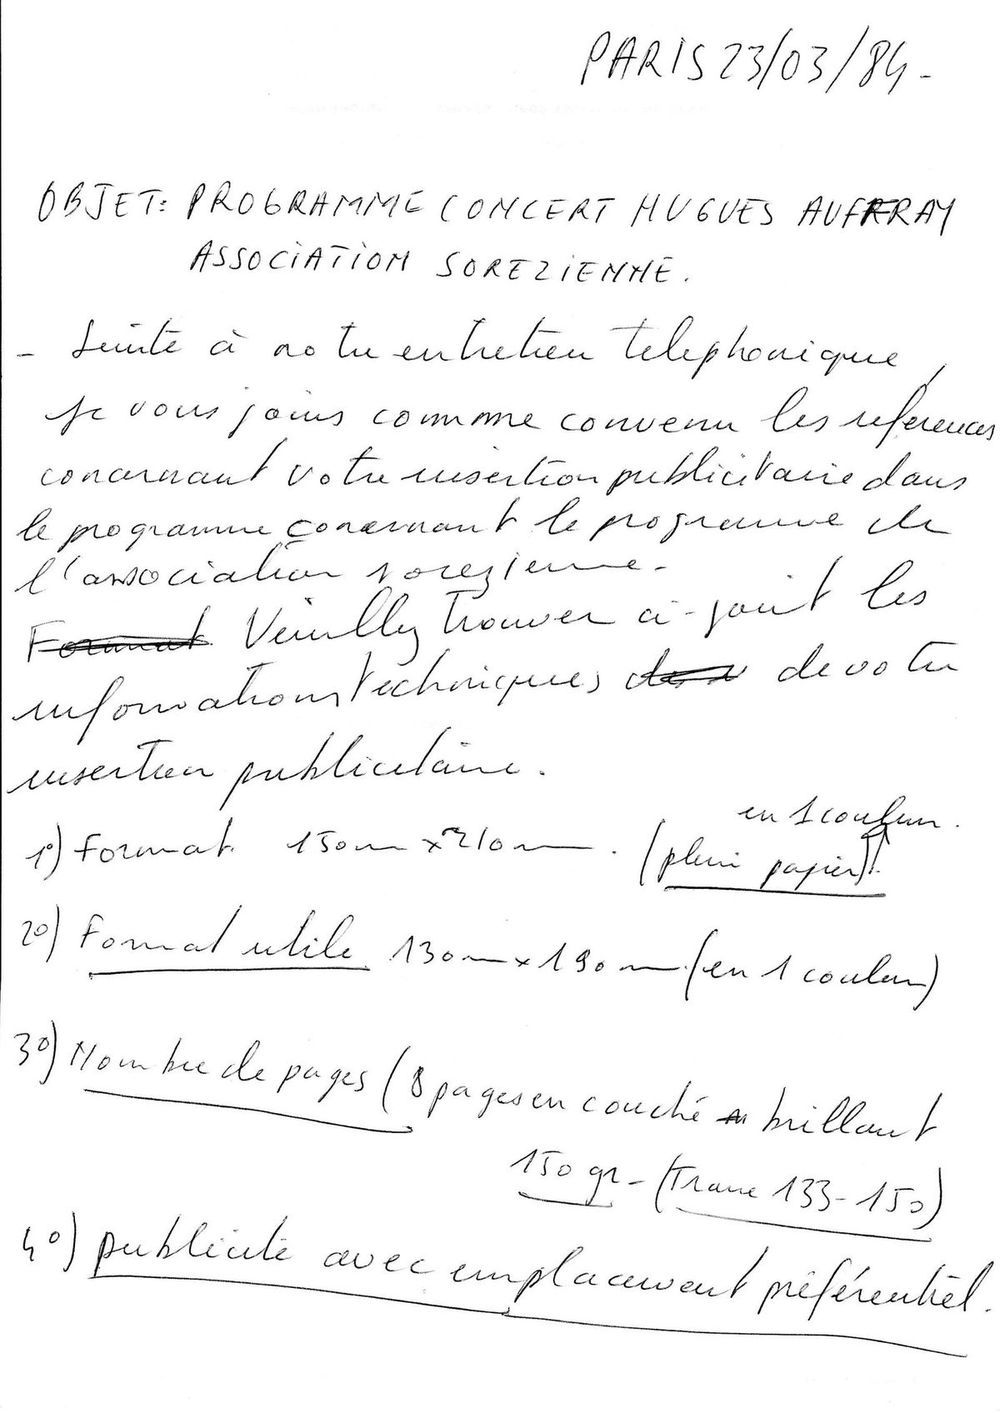 PARIS 23/03/84-
OBJET: PROGRAMME CONCERT HUGUES AUFRAY
ASSOCIATION SOREZIENNE.
- Suite à notre entretien telephonique,
je vous joins comme convenu les references
concernant votre insertion publicitaire dans
le programme concernant le programme de
l'association sorezienne.
Format Veuillez trouver ci-joint les
informations techniques de votre
insertion publicitaire.
en 1 couleur.
1°) Format 150mm x 210mm. (plein papier)
2°) Format utile 130mm x 190mm (en 1 couleur)
3°) Nombre de pages (8 pages en couché brillant
150 gr- (Trame 133-150)
4°) publicité avec emplacement préférentiel.